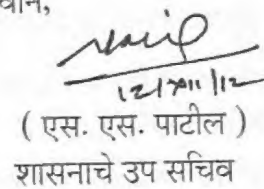 12/XII/12
( एस. एस. पाटील )
शासनाचे उप सचिव